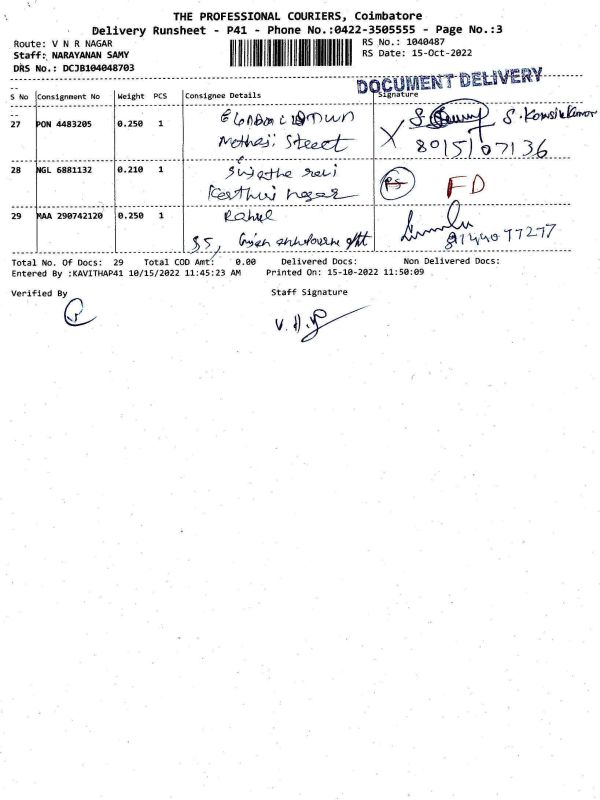 THE PROFESSIONAL COURIERS, Coimbatore
Delivery Runsheet - P41 - Phone No.:0422-3505555 - Page No.:3
Route: V N R NAGAR
RS No.: 1040487
Staff: NARAYANAN SAMY
RS Date: 15-Oct-2022
DRS No.: DCJB104048703
DOCUMENT DELIVERY
S No Consignment No Weight PCS Consignee Details Signature
27 PON 4483205 0.250 1
Street
S. 
8015107136
28 NGL 6881132 0.210 1
nagar
FD
29 MAA 290742120 0.250 1 Rahul
35,
Total No. Of Docs: 29 Total COD Amt: 0.00 Delivered Docs: Non Delivered Docs:
Entered By :KAVITHAP41 10/15/2022 11:45:23 AM Printed On: 15-10-2022 11:50:09
Verified By Staff Signature